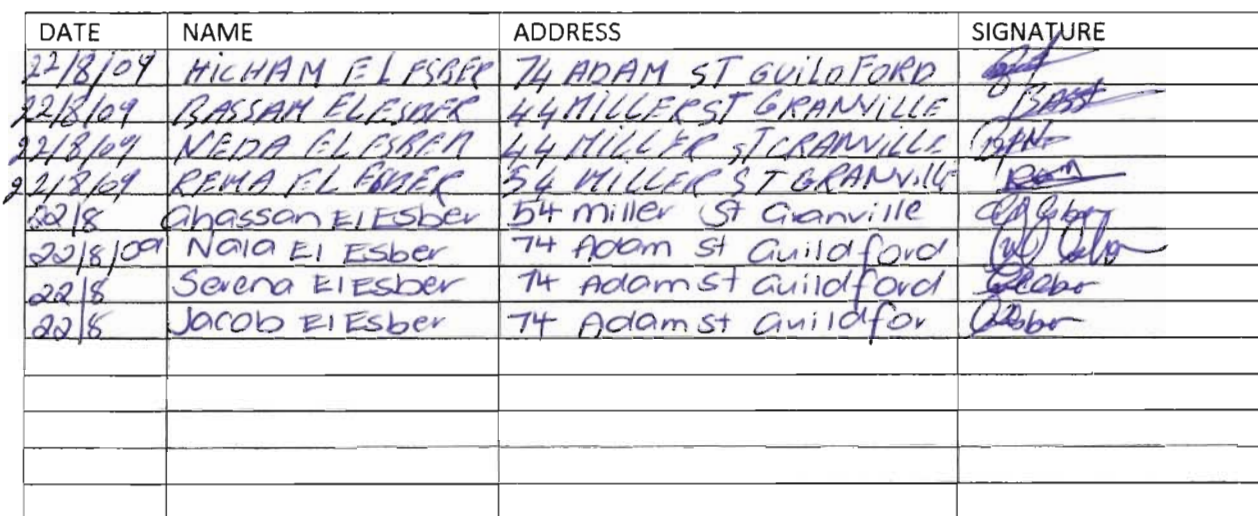 DATE NAME ADDRESS SIGNATURE
22/8/09 HICHAM EL ESBER 74 ADAM ST GUILDFORD
22/8/09 BASSAM EL ESBER 44 MILLER ST GRANVILLE
22/8/09 NEDA EL ESBER 44 MILLER ST GRANVILLE
22/8/09 REMA EL ESBER 54 MILLER ST GRANVILLE
22/8 Ghassan El Esber 54 miller St Granville
22/8/09 Nala El Esber 74 Adam St Guildford
22/8 Serena El Esber 74 Adam St Guildford
22/8 Jacob El Esber 74 Adam St Guildfor